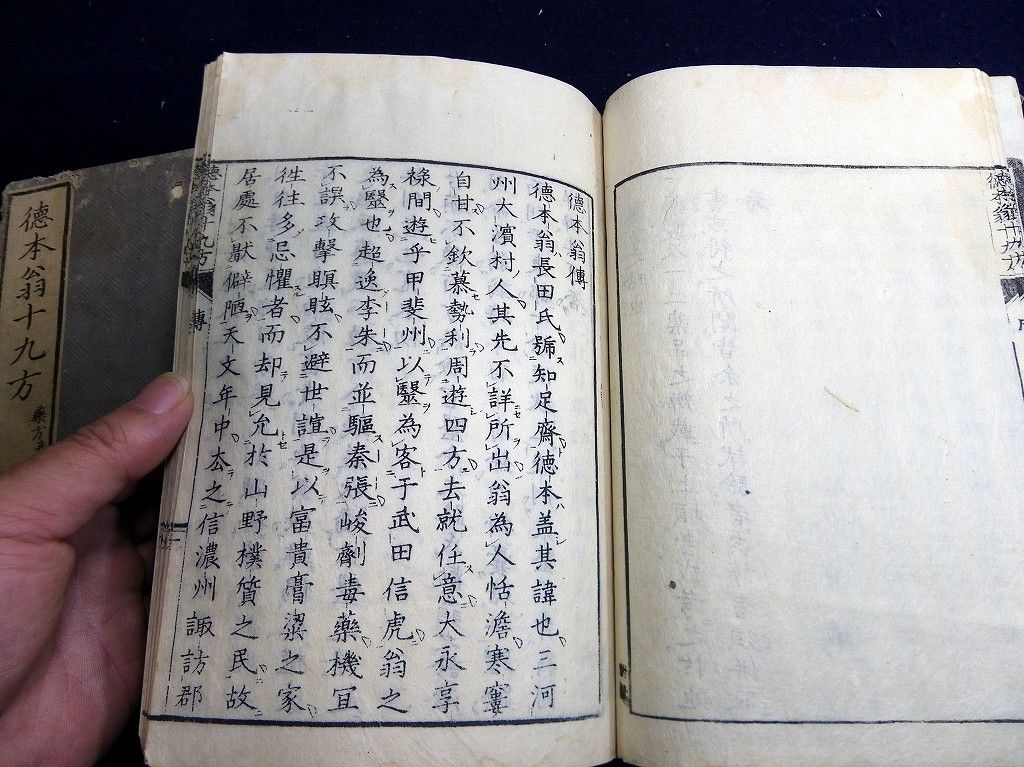 德本翁傳
德本翁長田氏號知足齋德本盖其諱也三河
州大濱村人其先不詳所出翁為人恬澹寒窶
自甘不欽慕勢利周遊四方去就任意大永享
祿間遊乎甲斐州以毉為客于武田信虎翁之
為毉也超逸李朱而並驅秦張峻劑毒藥機宜
不誤攻擊瞑眩不避世諠是以富貴膏粱之家
徃往多忌懼者而却見允於山野樸質之民故
居處不厭僻陋天文年中去之信濃州諏訪郡
傳
德本翁十九方